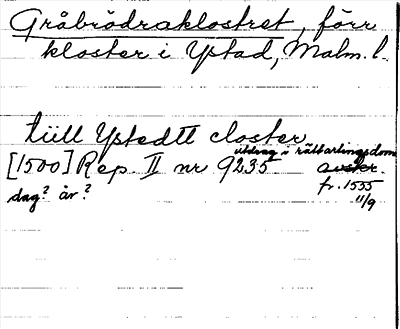 Gråbrödraklostret, förr
kloster i Ystad, Malm. l.
tiill Ystedtt closter
utdrag i rättartingsdom
[1500] Rep. II nr 9235 avskr.
dag? år? fr. 1555
11/9